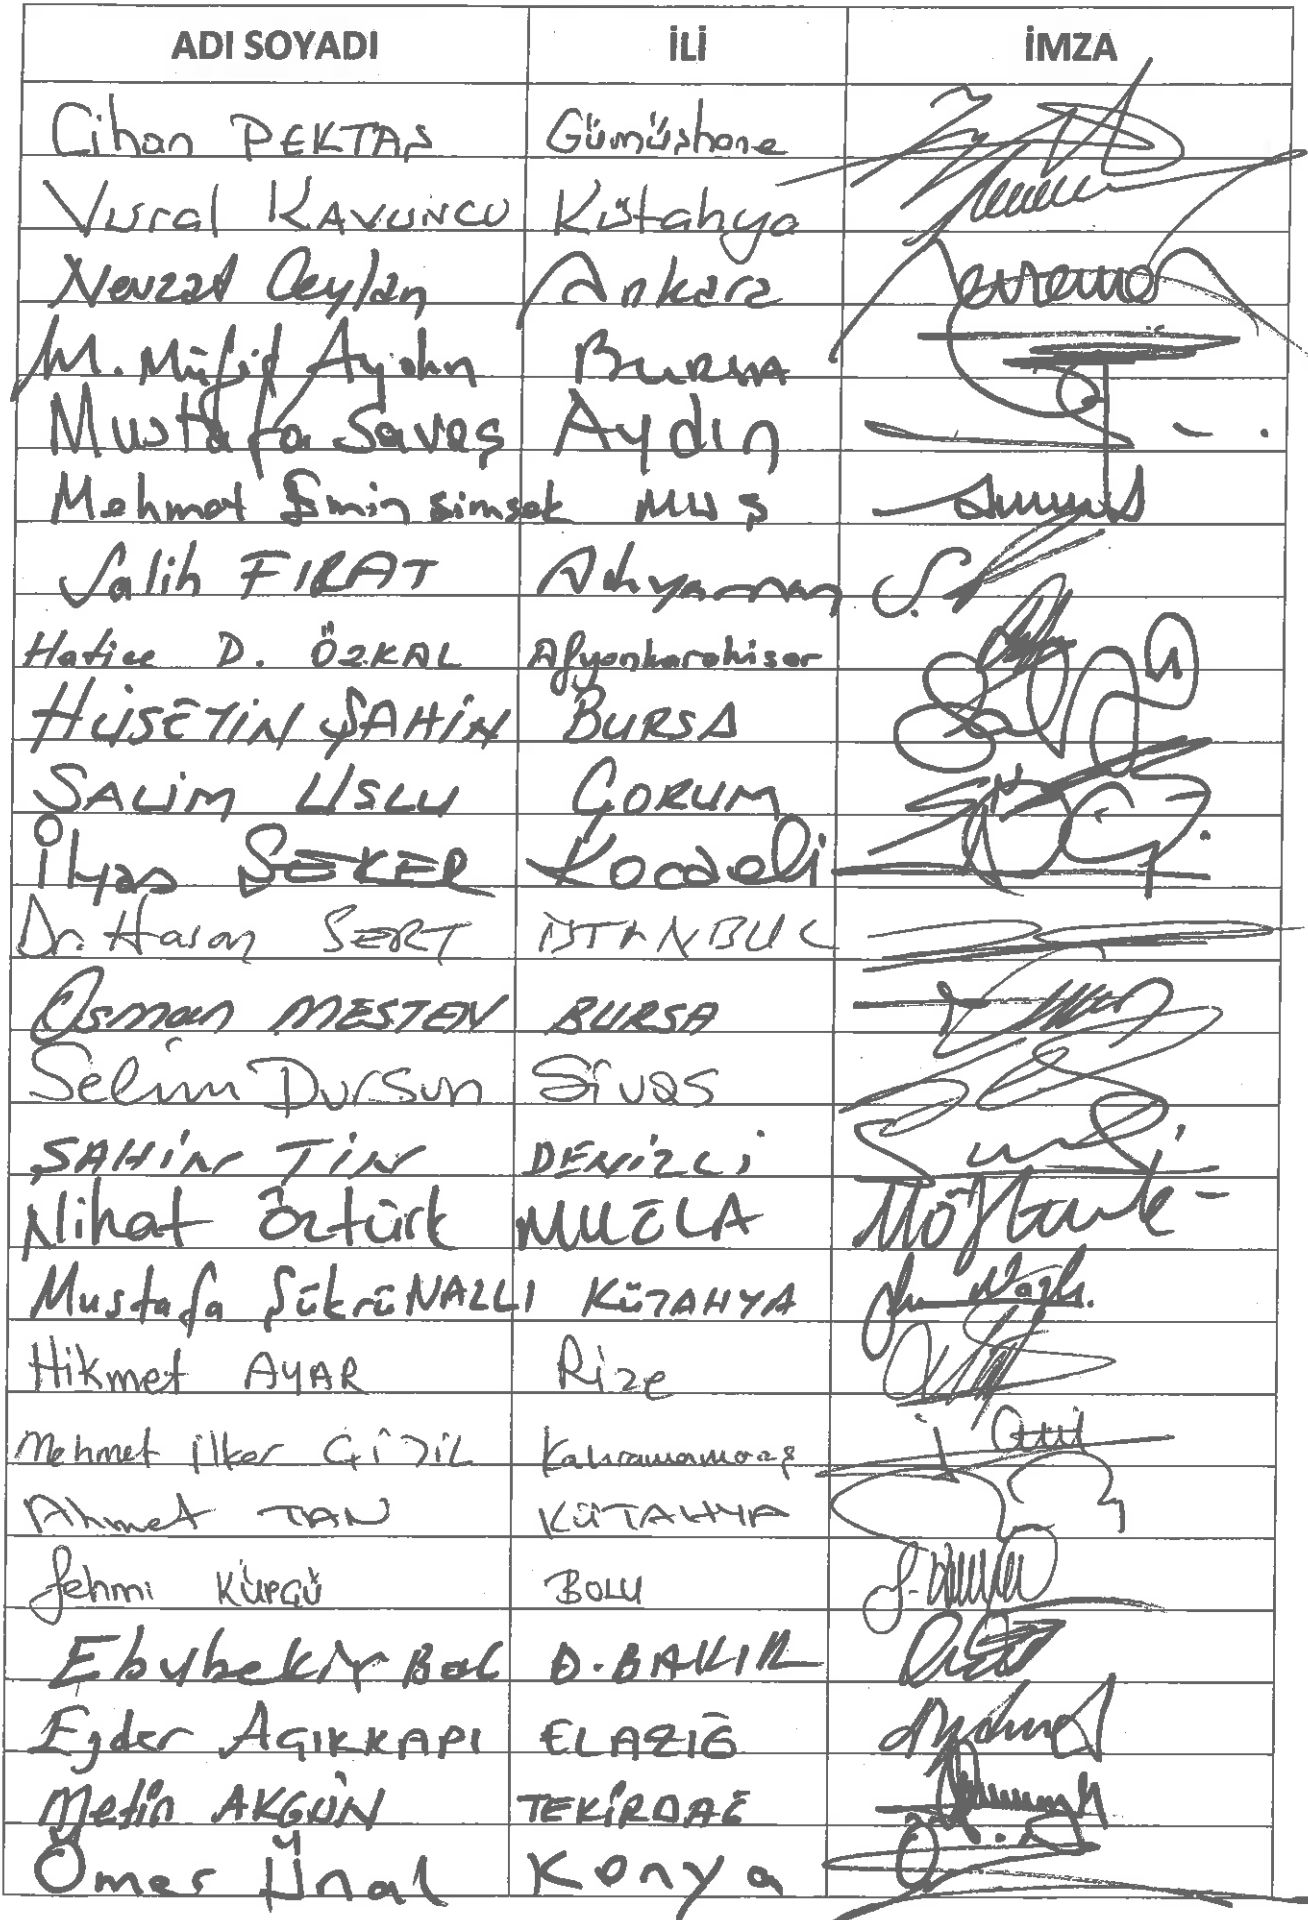 ADI SOYADI İLİ İMZA
Cihan PEKTAŞ Gümüşhane
Vural KAVUNCU Kütahya
Nevzat Ceylan Ankara
M. Müfit Aydın BURSA
Mustafa Savaş Aydın
Mehmet Emin Şimşek MUŞ
Salih FIRAT Adıyaman
Hatice D. ÖZKAL Afyonkarahisar
HÜSEYİN ŞAHİN BURSA
SALİM USLU ÇORUM
İlyas ŞEKER Kocaeli
Dr. Hasan SERT İSTANBUL
Osman MESTEN BURSA
Selim Dursun Sivas
ŞAHİN TİN DENİZLİ
Nihat Öztürk MUĞLA
Mustafa Şükrü NAZLI KÜTAHYA
Hikmet AYAR Rize
Mehmet İlker ÇİTİL Kahramanmaraş
Ahmet TAN KÜTAHYA
Fehmi KÜPÇÜ BOLU
Ebubekir BAL D.BAKIR
Ejder AÇIKKAPI ELAZIĞ
Metin AKGÜN TEKİRDAĞ
Ömer Ünal Konya